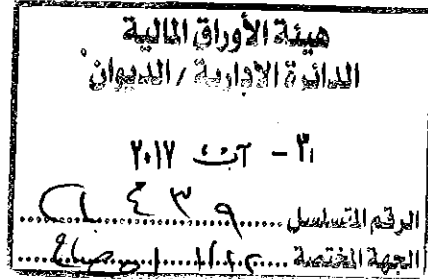 هيئة الأوراق المالية
الدائرة الادارية / الديوان
٣١ - آب ٢٠١٧
الرقم المتسلسل ..... ٤٣٩
الجهة المختصة .....